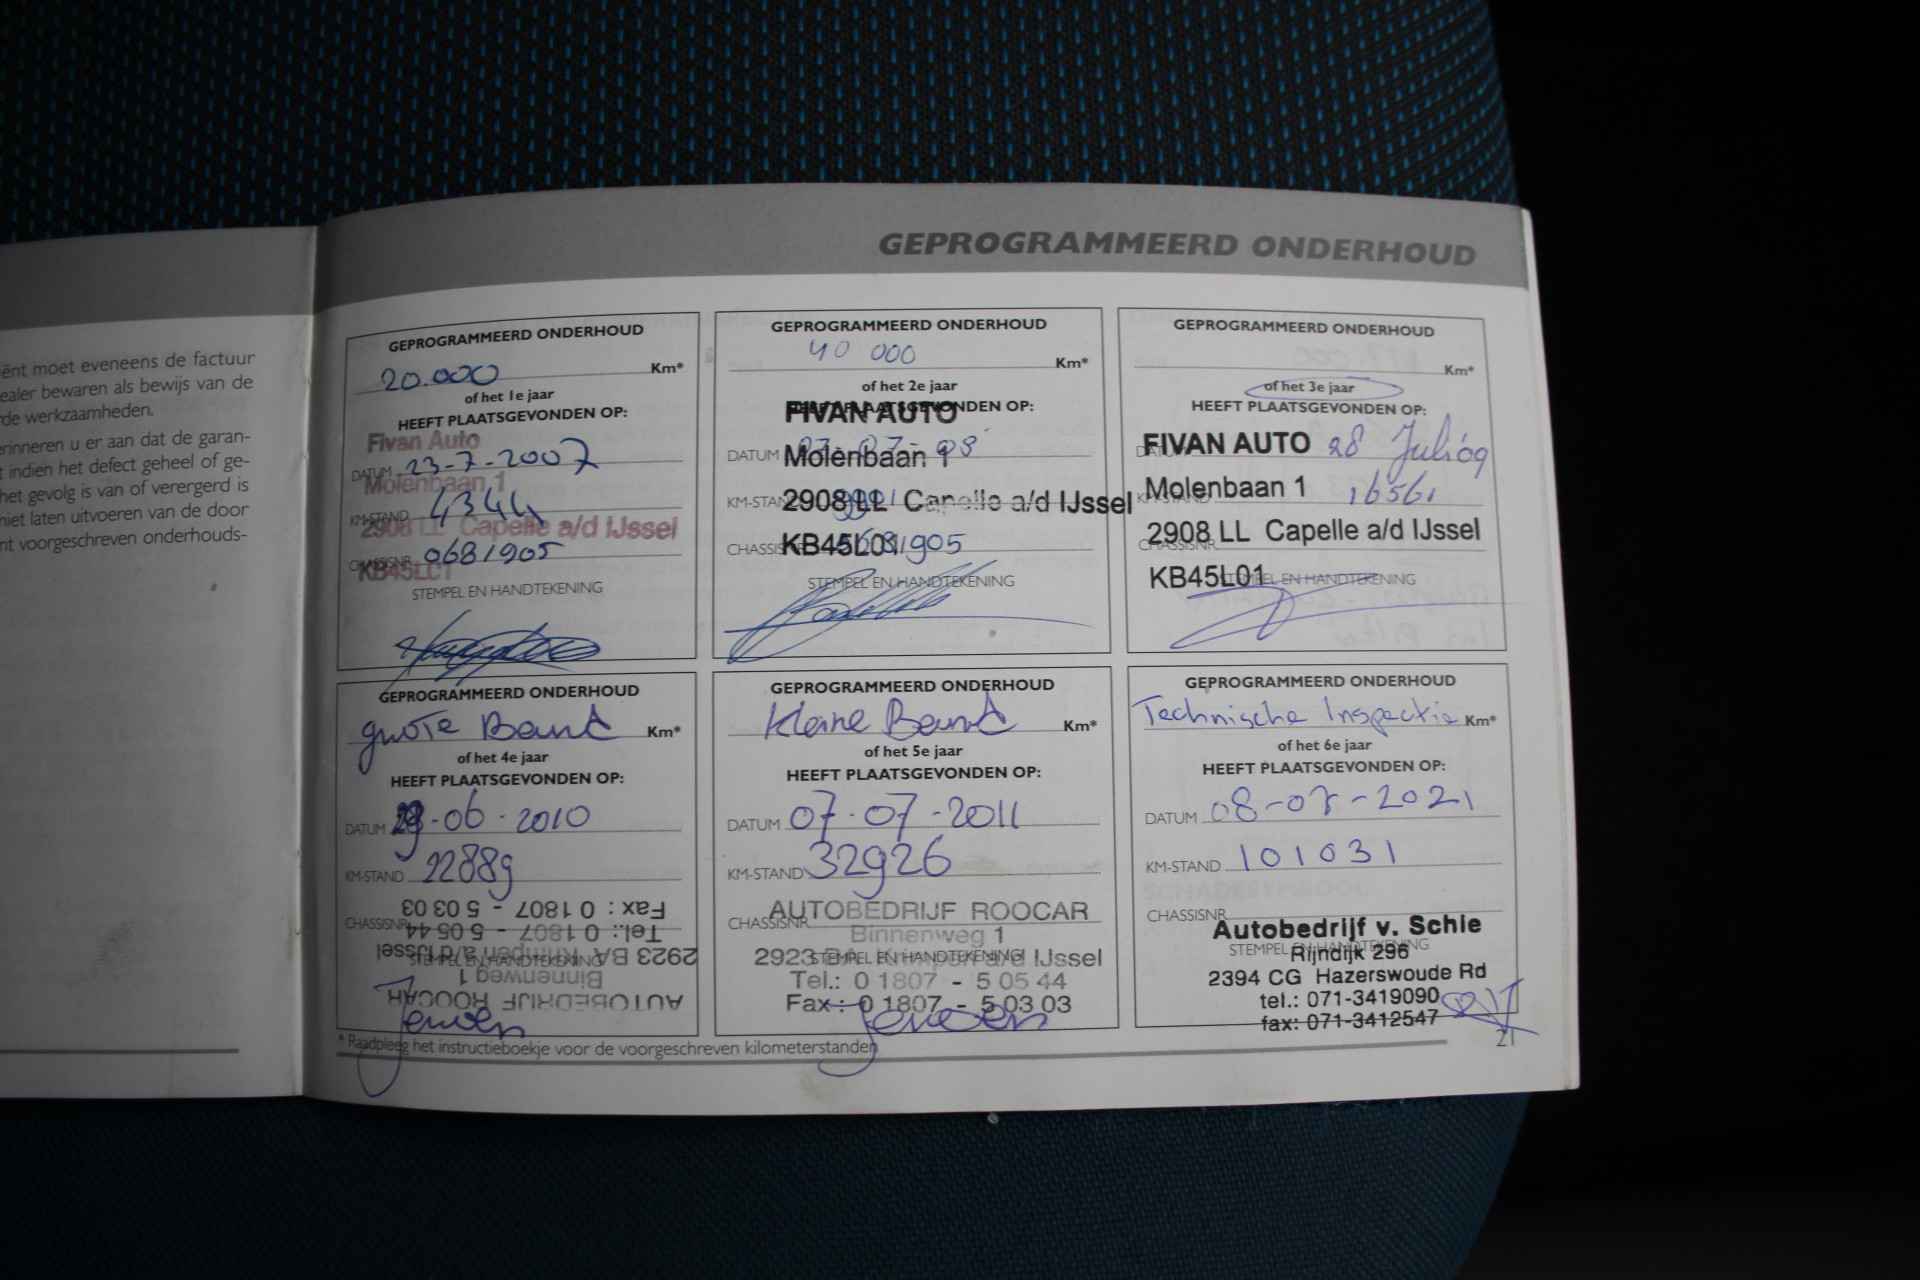 ënt moet eveneens de factuur
ealer bewaren als bewijs van de
rde werkzaamheden.
erinneren u er aan dat de garan-
t indien het defect geheel of ge-
het gevolg is van of verergerd is
niet laten uitvoeren van de door
nt voorgeschreven onderhouds-
GEPROGRAMMEERD ONDERHOUD
GEPROGRAMMEERD ONDERHOUD
20.000 Km*
of het 1e jaar
HEEFT PLAATSGEVONDEN OP:
Fivan Auto
DATUM 23-7-2007
Molenbaan 1
KM-STAND
2908 LL Capelle a/d IJssel
CHASSISNR. 0681905
KB45LC1
STEMPEL EN HANDTEKENING
GEPROGRAMMEERD ONDERHOUD
40 000 Km*
of het 2e jaar
HEEFT PLAATSGEVONDEN OP:
FIVAN AUTO
DATUM
Molenbaan 1
KM-STAND
2908 LL Capelle a/d IJssel
CHASSISNR
KB45L01
STEMPEL EN HANDTEKENING
GEPROGRAMMEERD ONDERHOUD
Km*
of het 3e jaar
HEEFT PLAATSGEVONDEN OP:
FIVAN AUTO 28 Juli 09
Molenbaan 1 16561
KM-STAND
2908 LL Capelle a/d IJssel
CHASSISNR.
KB45L01
STEMPEL EN HANDTEKENING
GEPROGRAMMEERD ONDERHOUD
grote Beurt Km*
of het 4e jaar
HEEFT PLAATSGEVONDEN OP:
DATUM 29-06-2010
KM-STAND 22889
Fax : 0 1807 - 5 03 03
CHASSISNR.
Tel.: 0 1807 - 5 05 44
2923 BA Krimpen a/d IJssel
STEMPEL EN HANDTEKENING
Binnenweg 1
AUTOBEDRIJF ROOCAR
Jeroen
GEPROGRAMMEERD ONDERHOUD
Kleine Beurt Km*
of het 5e jaar
HEEFT PLAATSGEVONDEN OP:
DATUM 07-07-2011
KM-STAND 32926
AUTOBEDRIJF ROOCAR
CHASSISNR.
Binnenweg 1
2923 BA Krimpen a/d IJssel
STEMPEL EN HANDTEKENING
Tel.: 0 1807 - 5 05 44
Fax : 0 1807 - 5 03 03
Jeroen
GEPROGRAMMEERD ONDERHOUD
Technische Inspectie Km*
of het 6e jaar
HEEFT PLAATSGEVONDEN OP:
DATUM 08-07-2021
KM-STAND 101031
CHASSISNR.
Autobedrijf v. Schie
STEMPEL EN HANDTEKENING
Rijndijk 296
2394 CG Hazerswoude Rd
tel.: 071-3419090
fax: 071-3412547
* Raadpleeg het instructieboekje voor de voorgeschreven kilometerstanden
21